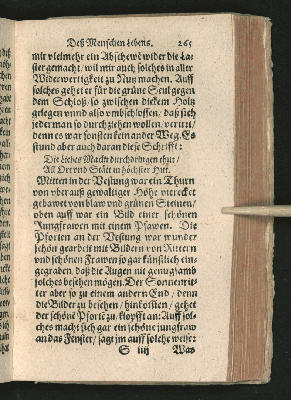 Deß Menschen Lebens. 265
mir vielmehr ein Abschewe wider die La-
ster gemacht/ wil mir auch solches in aller
Widerwertigkeit zu Nutz machen. Auff
solches gehet er für die grüne Seul gegen
dem Schloß/ so zwischen dickem Holtz
gelegen vnnd also vmbschlossen/ daß sich
jederman so durchziehen wollen/ verirrt/
denn es war sonsten kein ander Weg. Es
stund aber auch daran diese Schrifft:
Die Liebes Macht durchdringen thut/
All Ort vnd Stätt in höchster Hut.
Mitten in der Vestung war ein Thurn
von vberauß gewaltiger Höhe
gebawet von blaw vnd grünen Steinen/
oben auff war ein Bild einer schönen
Jungfrawen mit einem Pfawen. Die
Pforten an der Vestung war wunder
schön gearbeit mit Bildern von Rittern
vnd schönen Frawen so gar künstlich ein-
gegraben, daß die Augen nie genugsamb
solches besehen mögen. Der Sonnenrit-
ter aber so zu einem andern End/ denn
die Bilder zu besehen/ hinkommen/ gehet
der schöne Pforte zu/ klopfft an: Auff sol-
ches macht sich gar ein schöne jungfraw
an das Fenster/ sagt im auff solche weise:
S iiij Was